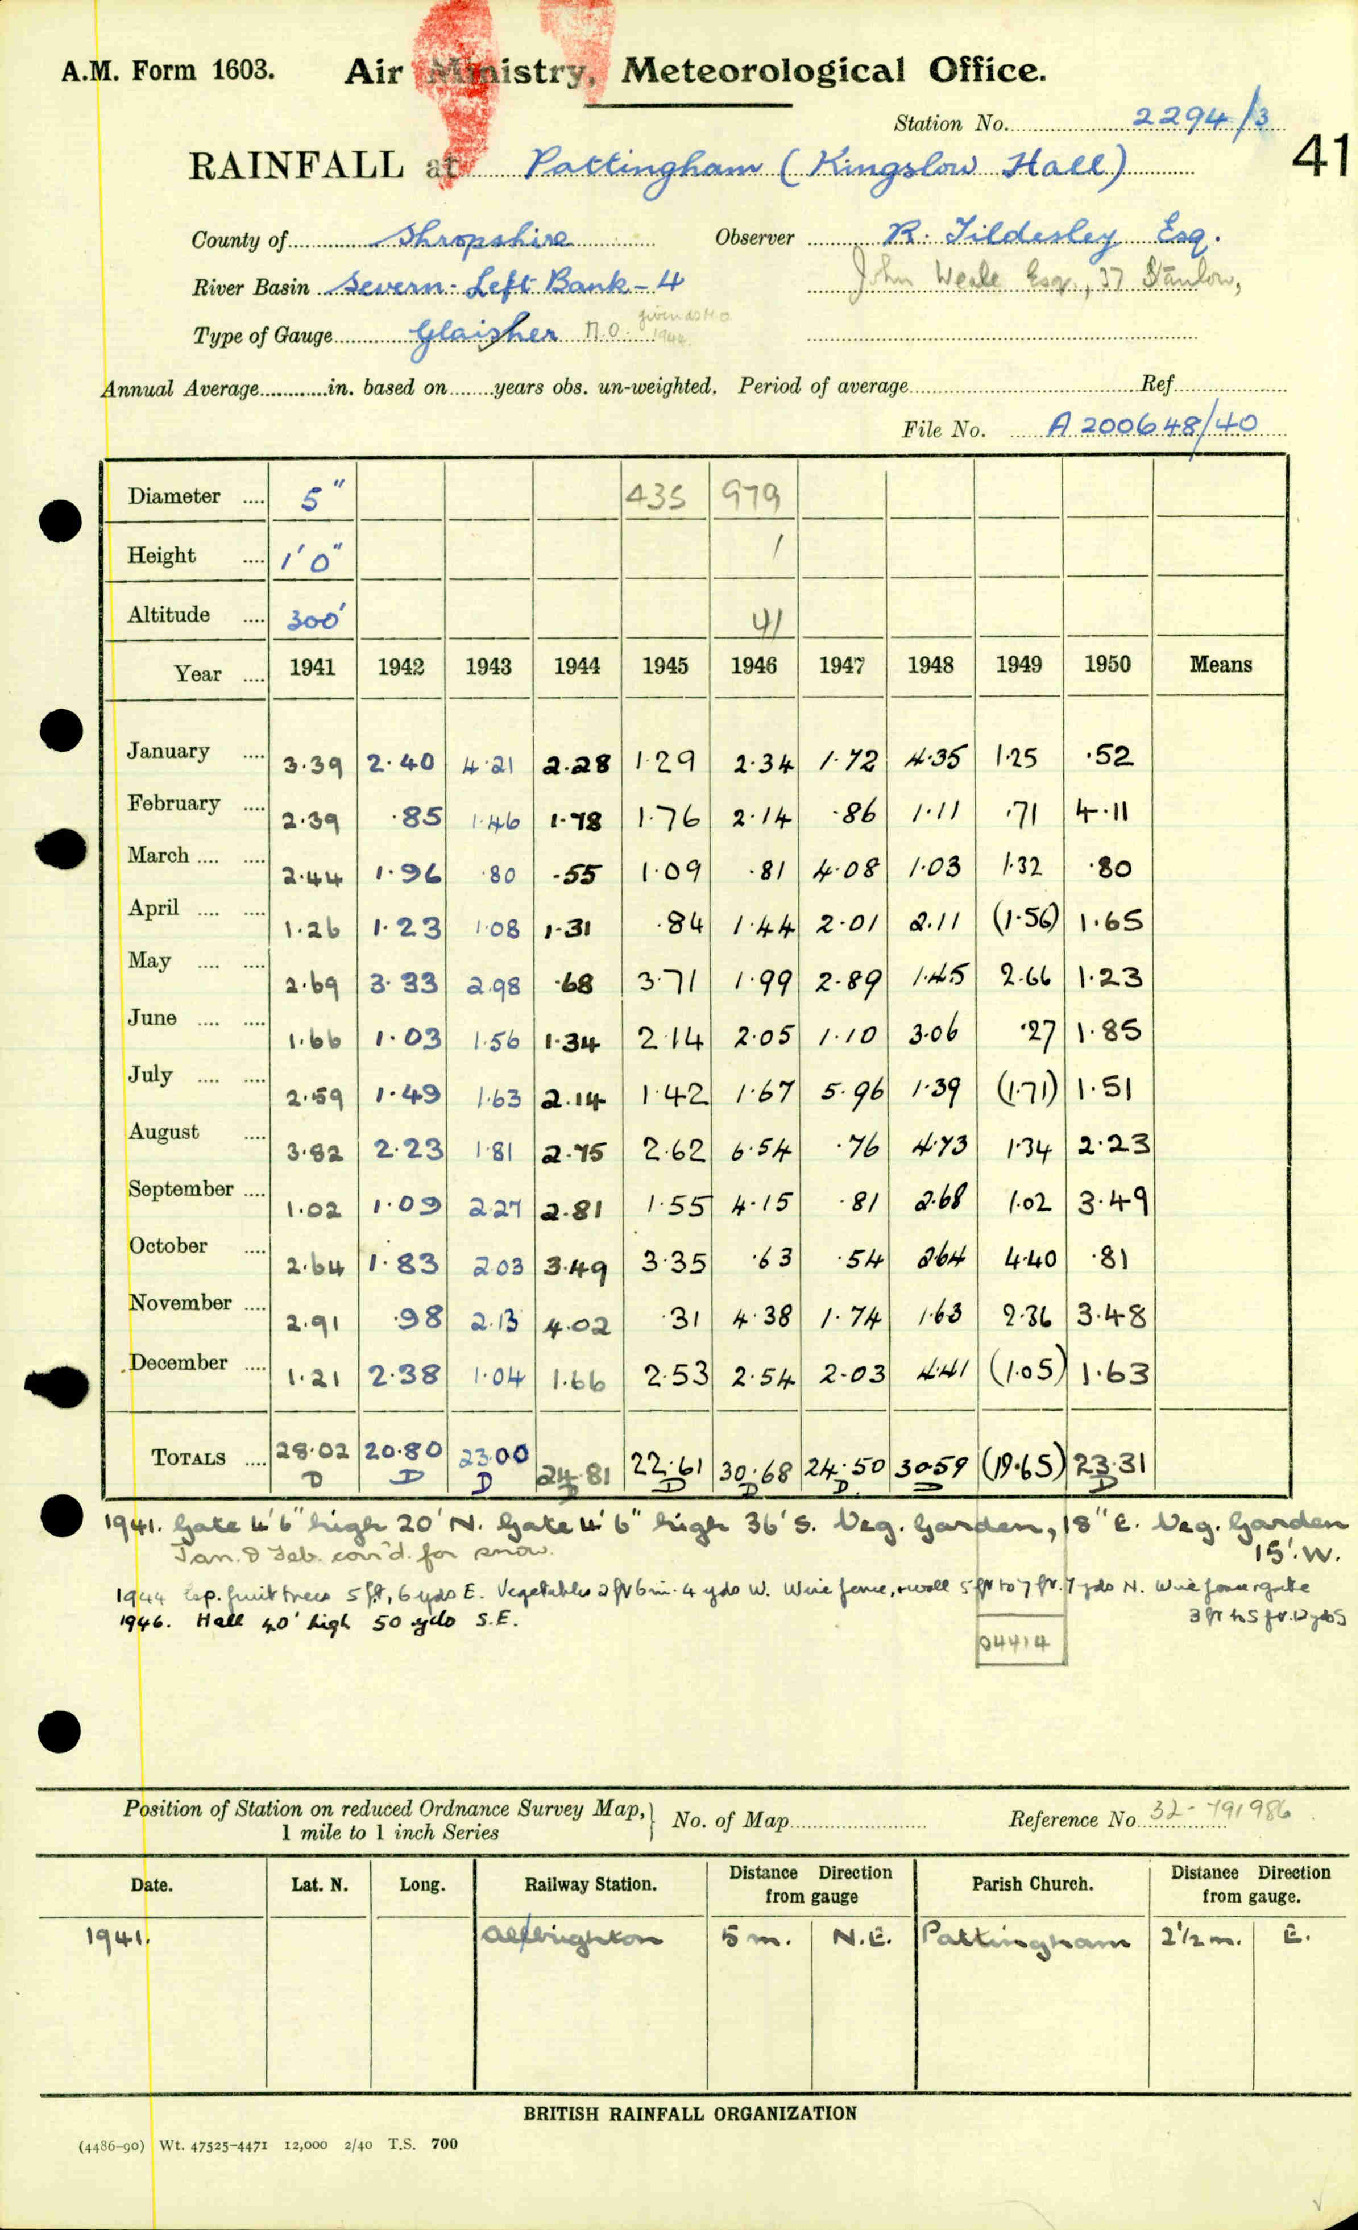 A.M. Form 1603. Air Ministry, Meteorological Office.
Station No. 2294/3
41
RAINFALL at Pattingham (Kingslow Hall)
County of Shropshire Observer R. Tildesley Esq.
River Basin Severn - Left Bank - 4 John Weale Esq., 37 Stanlow,
Type of Gauge Glaisher M.O. given as M.O. 1942
Annual Average in. based on years obs. un-weighted. Period of average Ref
File No. A 200648/40
Diameter 5" 435 979
Height 1' 0" 1
Altitude 300' 41
Year 1941 1942 1943 1944 1945 1946 1947 1948 1949 1950 Means
January 3.39 2.40 4.21 2.28 1.29 2.34 1.72 4.35 1.25 .52
February 2.39 .85 1.46 1.78 1.76 2.14 .86 1.11 .71 4.11
March 2.44 1.96 .80 .55 1.09 .81 4.08 1.03 1.32 .80
April 1.26 1.23 1.08 1.31 .84 1.44 2.01 2.11 (1.56) 1.65
May 2.69 3.33 2.98 .68 3.71 1.99 2.89 1.45 2.66 1.23
June 1.66 1.03 1.56 1.34 2.14 2.05 1.10 3.06 .27 1.85
July 2.59 1.49 1.63 2.14 1.42 1.67 5.96 1.39 (1.71) 1.51
August 3.82 2.23 1.81 2.75 2.62 6.54 .76 4.73 1.34 2.23
September 1.02 1.09 2.27 2.81 1.55 4.15 .81 2.68 1.02 3.49
October 2.64 1.83 2.03 3.49 3.35 .63 .54 2.64 4.40 .81
November 2.91 .98 2.13 4.02 .31 4.38 1.74 1.63 2.36 3.48
December 1.21 2.38 1.04 1.66 2.53 2.54 2.03 4.41 (1.05) 1.63
TOTALS 28.02 20.80 23.00 24.81 22.61 30.68 24.50 30.59 (19.65) 23.31
D D D D D D D D D
1941. Gate 4' 6" high 20' N. Gate 4' 6" high 36' S. Veg. Garden, 18" E. Veg. Garden
15'. W.
Jan. & Feb. corr'd. for snow.
1944 Esp. fruit trees 5 ft, 6 yds E. Vegetables 2 ft 6 in. 4 yds W. Wire fence, & wall 5 ft to 7 ft. 7 yds N. Wire fence & gate
3 ft to 5 ft. 12 yds S
1946. Hall 40' high 50 yds S.E.
04414
Position of Station on reduced Ordnance Survey Map, 1 mile to 1 inch Series No. of Map Reference No 32-791986
Date. Lat. N. Long. Railway Station. Distance Direction from gauge Parish Church. Distance Direction from gauge.
1941. Albrighton 5 m. N.E. Pattingham 2½ m. E.
BRITISH RAINFALL ORGANIZATION
(4486-90) Wt. 47525-4471 12,000 2/40 T.S. 700